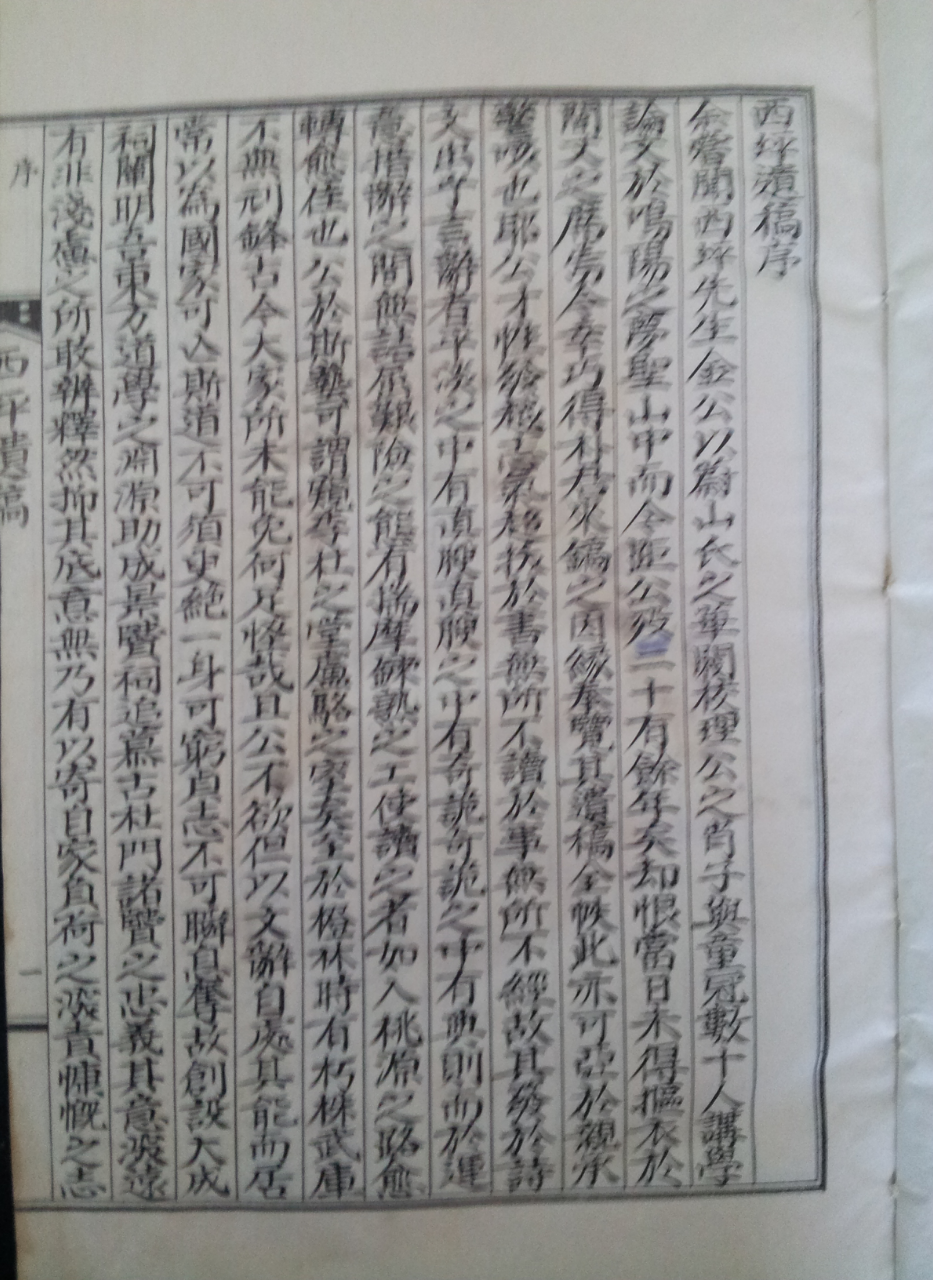 西坪遺稿序
余嘗聞西坪先生金公以蔚山氏之華閥核理公之肖子與童冠數十人講學
論文於鳴陽之夢聖山中而今距公歿二十有餘年矣却恨當日未得摳衣於
間丈之席密今幸巧得朴君來鎬之因緣奉覽其遺稿全帙此亦可亞於親承
警咳也耶公才性發越志氣超拔於書無所不讀於事無所不經故其發於詩
文出乎言辭者平淡之中有直腴直腴之中有奇詭奇詭之中有典則而於運
意措辭之間無詰屈艱險之態有揣摩鍊熟之工使讀之者如入桃源之路愈
轉愈佳也公於斯藝可謂窺李杜之堂廡駱之室矣至於橙林時有朽株武庫
不無利鋒古今大家所未能免何足怪哉且公不欲但以文辭自處其能而居
常以爲國家可亡斯道不可須臾絶一身可窮貞志不可聯息奪故創設大成
祠闡明吾東方道學之淵源助成景賢祠追慕古杜門諸賢之忠義其意深遠
有非淺慮之所敢辨釋然抑其底意無乃有以寄自家自荷之深責慷慨之志
序
西坪遺稿
一